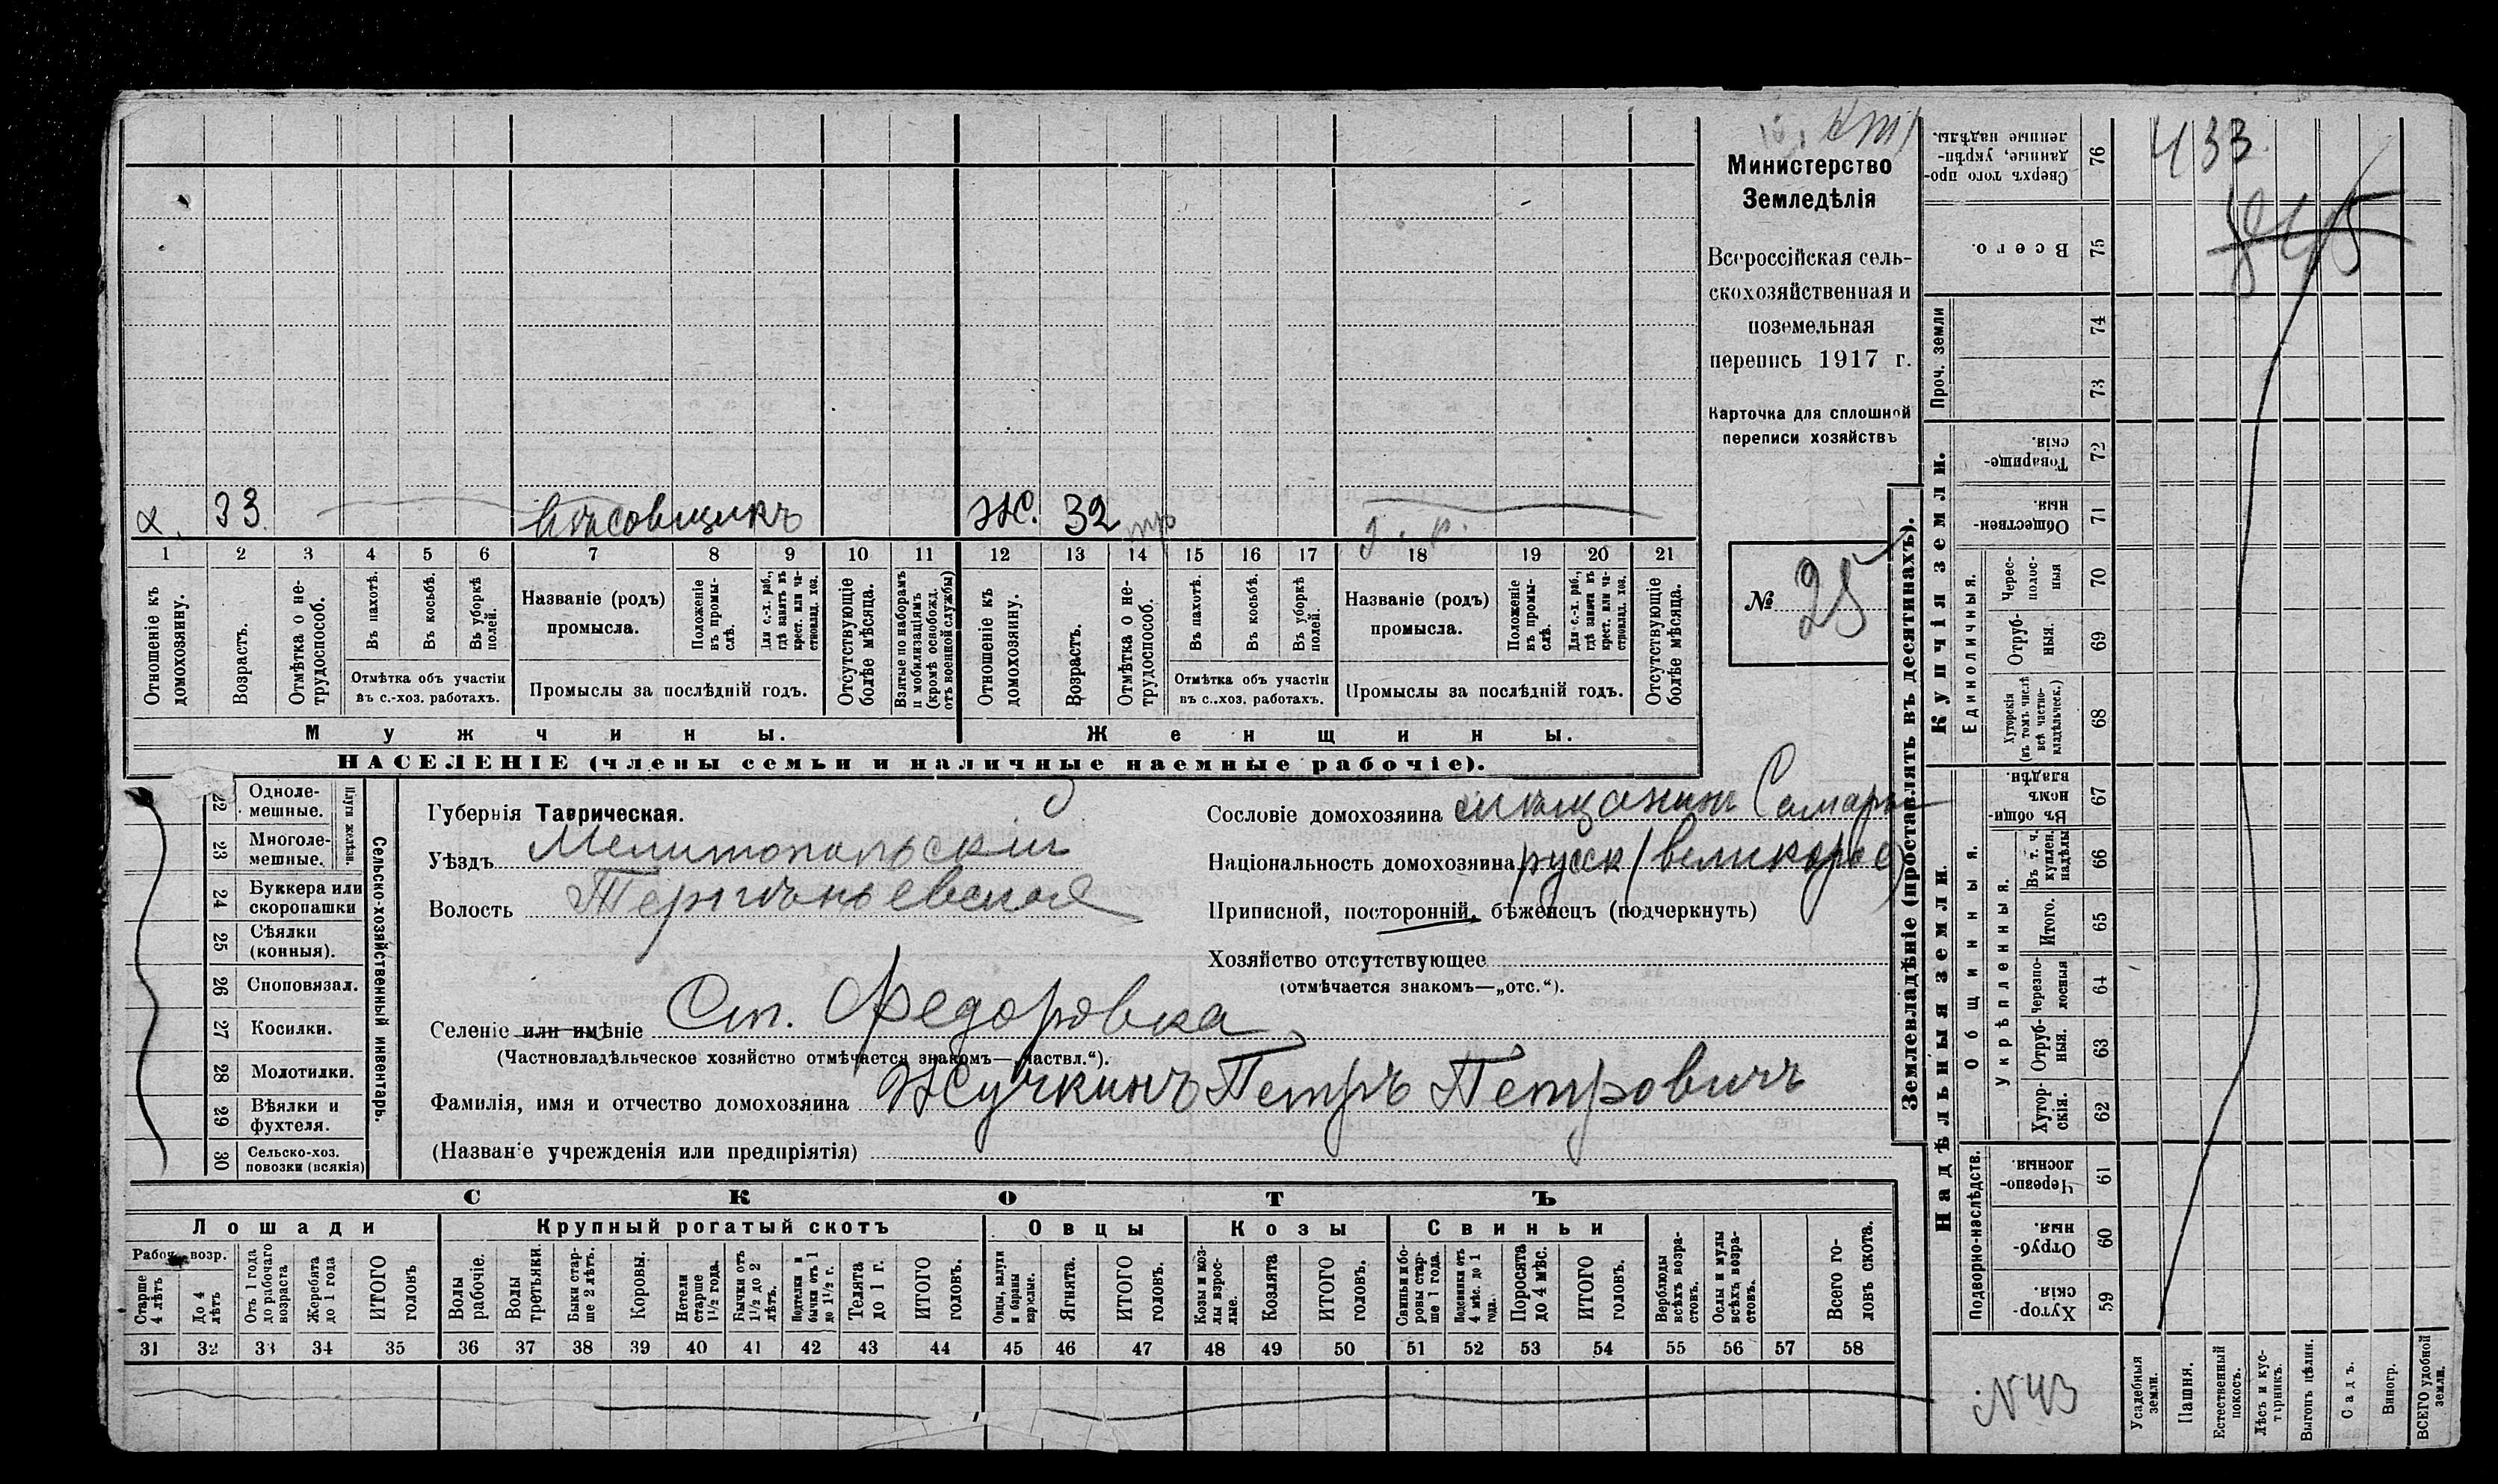 х. 33. вѣсовщикъ Ж. 32 тр г. р.
1 2 3 4 5 6 7 8 9 10 11 12 13 14 15 16 17 18 19 20 21
Отношеніе къ домохозяину.
Возрастъ.
Отмѣтка о нетрудоспособ.
Въ пахотѣ.
Въ косьбѣ.
Въ уборкѣ полей.
Отмѣтка объ участіи
въ с.-хоз. работахъ.
Названіе (родъ)
промысла.
Положеніе въ промыслѣ.
Для с.-х. раб., гдѣ занятъ въ крест. или частновлад. хоз.
Промыслы за послѣдній годъ.
Отсутствующіе болѣе мѣсяца.
Взятые по наборамъ и мобилизаціямъ (кромѣ освобожд. отъ военной службы)
Отношеніе къ домохозяину.
Возрастъ.
Отмѣтка о нетрудоспособ.
Въ пахотѣ.
Въ косьбѣ.
Въ уборкѣ полей.
Отмѣтка объ участіи
въ с.-хоз. работахъ.
Названіе (родъ)
промысла.
Положеніе въ промыслѣ.
Для с.-х. раб., гдѣ занята въ крест. или частновлад. хоз.
Промыслы за послѣдній годъ.
Отсутствующіе болѣе мѣсяца.
Мужчины.
Женщины.
НАСЕЛЕНІЕ (члены семьи и наличные наемные рабочіе).
Министерство
Земледѣлія
Всероссійская сель-
скохозяйственная и
поземельная
перепись 1917 г.
Карточка для сплошной
переписи хозяйствъ
№ 25
22 Однолемешные.
23 Многолемешные.
Плуги желѣзн.
24 Буккера или скоропашки
25 Сѣялки (конныя).
26 Споповязал.
27 Косилки.
28 Молотилки.
29 Вѣялки и фухтеля.
30 Сельско-хоз. повозки (всякія)
Сельско-хозяйственный инвентарь.
Губернія Таврическая.
Уѣздъ Мелитопольскій
Волость Терпѣньевская
Селеніе или имѣніе Ст. Федоровка
(Частновладѣльческое хозяйство отмѣчается знакомъ—„частвл.“).
Фамилія, имя и отчество домохозяина Жучкинъ Петръ Петровичъ
(Названіе учрежденія или предпріятія)
Сословіе домохозяина мѣщанинъ Самары
Національность домохозяина русск (великорос)
Приписной, посторонній, бѣженецъ (подчеркнуть)
Хозяйство отсутствующее
(отмѣчается знакомъ—„отс.“).
СКОТЪ
Лошади
Крупный рогатый скотъ
Овцы
Козы
Свиньи
Рабоч. возр.
Старше 4 лѣтъ
До 4 лѣтъ
Отъ 1 года до рабочаго возраста
Жеребята до 1 года
ИТОГО головъ
Волы рабочіе.
Волы третьяки.
Быки старше 2 лѣтъ.
Коровы.
Нетели старше 1½ года.
Бычки отъ 1½ до 2 лѣтъ.
Подтелки и бычки отъ 1 до 1½ г.
Телята до 1 г.
ИТОГО головъ.
Овцы, валухи и бараны взрослые.
Ягнята.
ИТОГО головъ.
Козы и козлы взрослые.
Козлята
ИТОГО головъ.
Свиньи и боровы старше 1 года.
Подсвинки отъ 4 мѣс. до 1 года.
Поросята до 4 мѣс.
ИТОГО головъ.
Верблюды всѣхъ возрастовъ.
Ослы и мулы всѣхъ возрастовъ.
Всего головъ скота.
31 32 33 34 35 36 37 38 39 40 41 42 43 44 45 46 47 48 49 50 51 52 53 54 55 56 57 58
Землевладѣніе (проставлять въ десятинахъ).
Надѣльныя земли.
Купчія земли.
Проч. земли
Сверхъ того проданные, укрѣпленные надѣлы. 76
Всего. 75
74
73
Товарищескія. 72
Общественныя. 71
Единоличныя.
Чересполосныя 70
Отрубныя. 69
Хуторскія (въ томъ числѣ всѣ частновладѣльческ.) 68
Общинныя.
Въ общинномъ владѣн. 67
Укрѣпленныя.
Въ т. ч. куплен. надѣлы 66
Итого. 65
Черезполосныя 64
Отрубныя. 63
Хуторскія. 62
Подворно-наслѣдств.
Черезполосныя. 61
Отрубныя. 60
Хуторскія. 59
433
N 43
Усадебныя земли.
Пашня.
Естественный покосъ.
Лѣсъ и кустарникъ.
Выгонъ цѣлин.
Садъ.
Виногр.
ВСЕГО удобной земли.